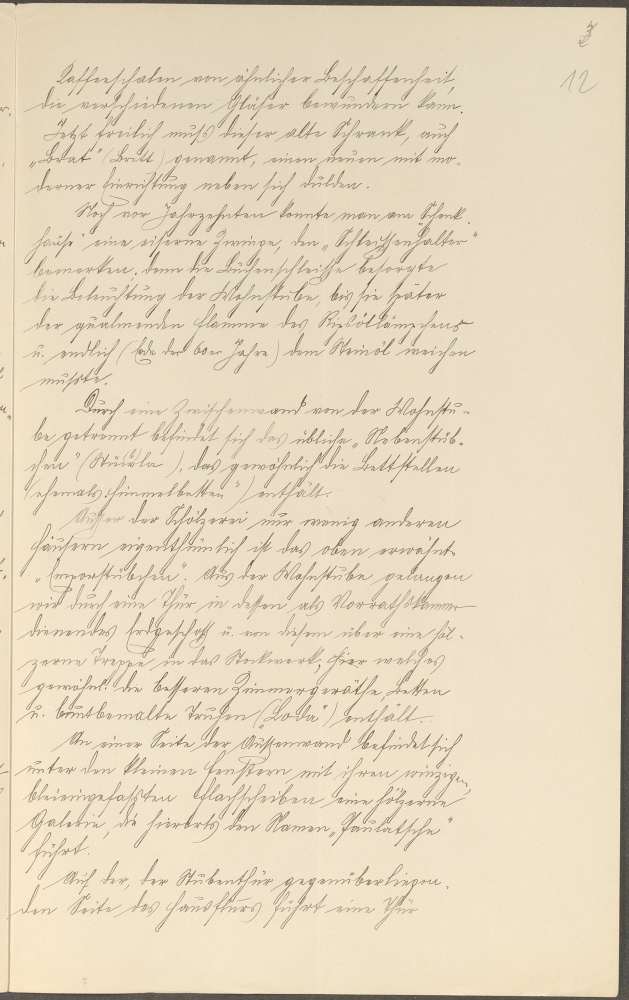 12
Kaffeeschalen von ähnlicher Beschaffenheit,
die verschiedenen Gläser bewundern kann.
Jetzt freilich muß dieser alte Schrank, auch
„Brat" (Brett) genannt, einen neuen mit mo-
derner Einrichtung neben sich dulden.
Noch vor Jahrzehnten konnte man am Schenk-
hause eine eiserne Zwinge, den „Schleissenhalter"
bemerken; denn die Buchenschleisse besorgte
die Beleuchtung der Wohnstube, bis sie später
der qualmenden Flamme des Rüböllämpchens
u. endlich (Ende der 60er Jahre) dem Steinöl weichen
mußte.
Durch eine Zwischenwand von der Wohnstu-
be getrennt befindet sich das übliche „Nebenstüb-
chen" (Stüwla), das gewöhnlich die Bettstellen
(ehemals „Himmelbetten") enthält.
Außer der Scholzerei nur wenig anderen
Häusern eigenthümlich ist das oben erwähnte
„Emporstübchen". Aus der Wohnstube gelangen
wir durch eine Thür in dessen als Vorrathskammer
dienendes Erdgeschoß u. von diesem über eine höl-
zerne Treppe in das Stockwerk, hier welches
gewöhnl. die besseren Zimmergeräthe, Betten
u. buntbemalte Truhen („Loda") enthält.
An einer Seite der Aussenwand befindet sich
unter den kleinen Fenstern mit ihren winzigen,
bleieingefaßten Flachscheiben eine hölzerne
Galerie, die hierorts den Namen „Paulatsche"
führt.
Auf der, der Stubenthür gegenüberliegen-
den Seite des Hausflurs führt eine Thür